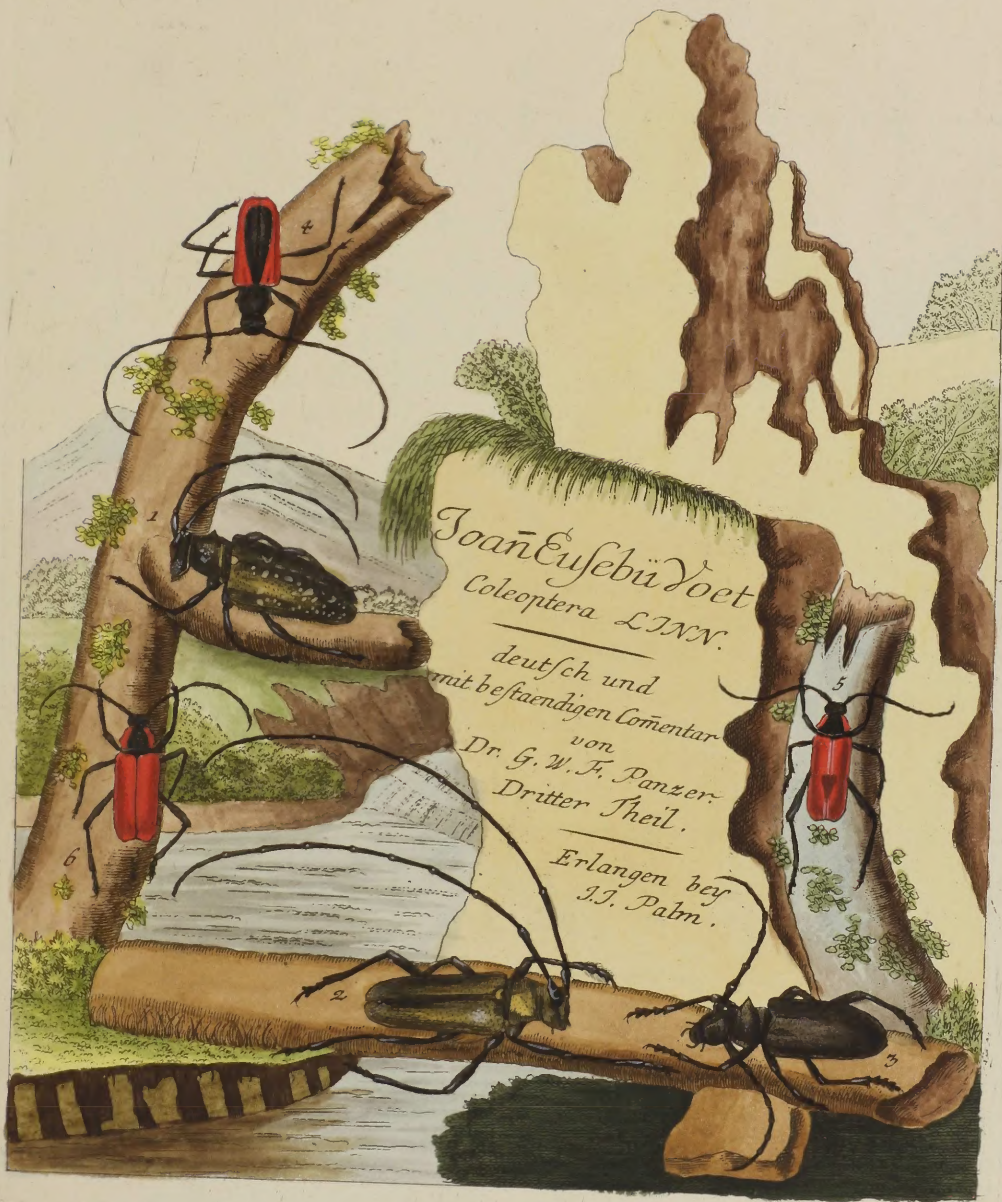 Joan̄ Euſebii Voet
Coleoptera LINN.
deutſch und
mit beſtaendigen Com̄entar
von
Dr. G. W. F. Panzer.
Dritter Theil.
Erlangen bey
J. J. Palm.
4
1
5
6
2
3